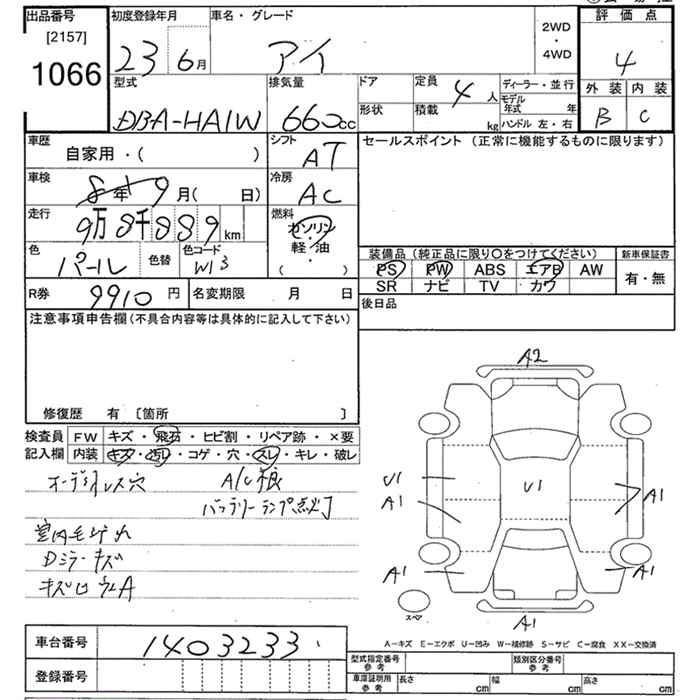 出品番号
[2157]
1066
初度登録年月
23 6月
車名・グレード
アイ
2WD
・
4WD
評価点
4
外装 内装
B C
型式
DBA-HA1W
排気量
660cc
ドア
形状
定員 4人
積載 kg
ディーラー・並行
モデル年式 年
ハンドル 左・右
車歴
自家用・( )
シフト
AT
セールスポイント (正常に機能するものに限ります)
車検
8年 9月( 日)
冷房
AC
走行
9万8千889km
燃料
ガソリン
軽・油
( )
色
パール
色替
色コード
W13
装備品(純正品に限り〇をつけてください)
PS PW ABS エアB AW
SR ナビ TV カワ
新車保証書
有・無
R券 9910円
名変期限 月 日
後日品
注意事項申告欄(不具合内容等は具体的に記入して下さい)
修復歴 有 〔箇所 〕
検査員記入欄
FW キズ・飛石・ヒビ割・リペア跡・×要
内装 キズ・汚レ・コゲ・穴・スレ・キレ・破レ
オーディオレス穴
バッテリーランプ点灯
Dミラーキズ
A2
U1
A1
U1
A1
A1
A1
A1
スペア
A-キズ E-エクボ U-凹み W-補修跡 S-サビ C-腐食 XX-交換済
車台番号
1403233
登録番号
型式指定番号
参考
類別区分番号
参考
車庫証明用
参考
長さ cm
幅 cm
高さ cm